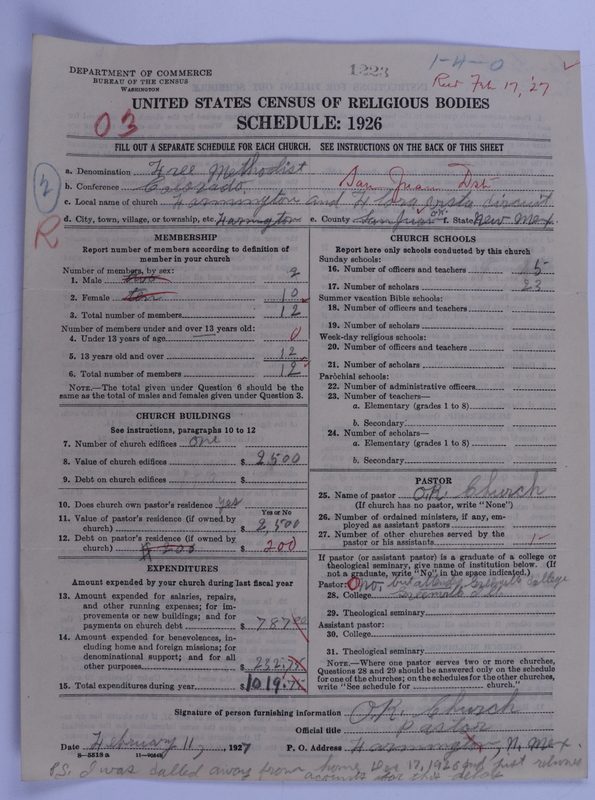 DEPARTMENT OF COMMERCE
BUREAU OF THE CENSUS
WASHINGTON
1223
1-4-0
Rec Feb 17, '27
UNITED STATES CENSUS OF RELIGIOUS BODIES
SCHEDULE: 1926
03
FILL OUT A SEPARATE SCHEDULE FOR EACH CHURCH. SEE INSTRUCTIONS ON THE BACK OF THIS SHEET
2
R
a. Denomination Free Methodist
b. Conference Colorado, San Juan Dst.
c. Local name of church Farmington and Flora vista circuit
d. City, town, village, or township, etc. Farmington e. County San Juan f. State New Mex
MEMBERSHIP
Report number of members according to definition of
member in your church
Number of members, by sex:
1. Male two 2
2. Female ten 10
3. Total number of members 12
Number of members under and over 13 years old:
4. Under 13 years of age 0
5. 13 years old and over 12
6. Total number of members 12
NOTE.—The total given under Question 6 should be the
same as the total of males and females given under Question 3.
CHURCH BUILDINGS
See instructions, paragraphs 10 to 12
7. Number of church edifices one
8. Value of church edifices $ 2,500
9. Debt on church edifices $
10. Does church own pastor's residence yes
Yes or No
11. Value of pastor's residence (if owned by
church) $ 2,500
12. Debt on pastor's residence (if owned by
church) $ 200 $ 200
EXPENDITURES
Amount expended by your church during last fiscal year
13. Amount expended for salaries, repairs,
and other running expenses; for im-
provements or new buildings; and for
payments on church debt $ 787
14. Amount expended for benevolences, in-
cluding home and foreign missions; for
denominational support; and for all
other purposes $ 232.
15. Total expenditures during year $ 1019.
CHURCH SCHOOLS
Report here only schools conducted by this church
Sunday schools:
16. Number of officers and teachers 5
17. Number of scholars 23
Summer vacation Bible schools:
18. Number of officers and teachers
19. Number of scholars
Week-day religious schools:
20. Number of officers and teachers
21. Number of scholars
Parochial schools:
22. Number of administrative officers
23. Number of teachers—
a. Elementary (grades 1 to 8)
b. Secondary
24. Number of scholars—
a. Elementary (grades 1 to 8)
b. Secondary
PASTOR
25. Name of pastor O.K. Church
(If church has no pastor, write "None")
26. Number of ordained ministers, if any, em-
ployed as assistant pastors
27. Number of other churches served by the
pastor or his assistants 1
If pastor (or assistant pastor) is a graduate of a college or
theological seminary, give name of institution below. (If
not a graduate, write "No", in the space indicated.)
Pastor: O no, but attended College
28. College Greenville Ill.
29. Theological seminary
Assistant pastor:
30. College
31. Theological seminary
NOTE.—Where one pastor serves two or more churches,
Questions 28 and 29 should be answered only on the schedule
for one of the churches; on the schedules for the other churches,
write "See schedule for church."
Signature of person furnishing information O.K. Church
Official title Pastor
Date February 11, 1927 P. O. Address Farmington, N. Mex.
8—5518 a
P.S. I was called away from home Dec 17, 1926 and just returned
accounts for this delay